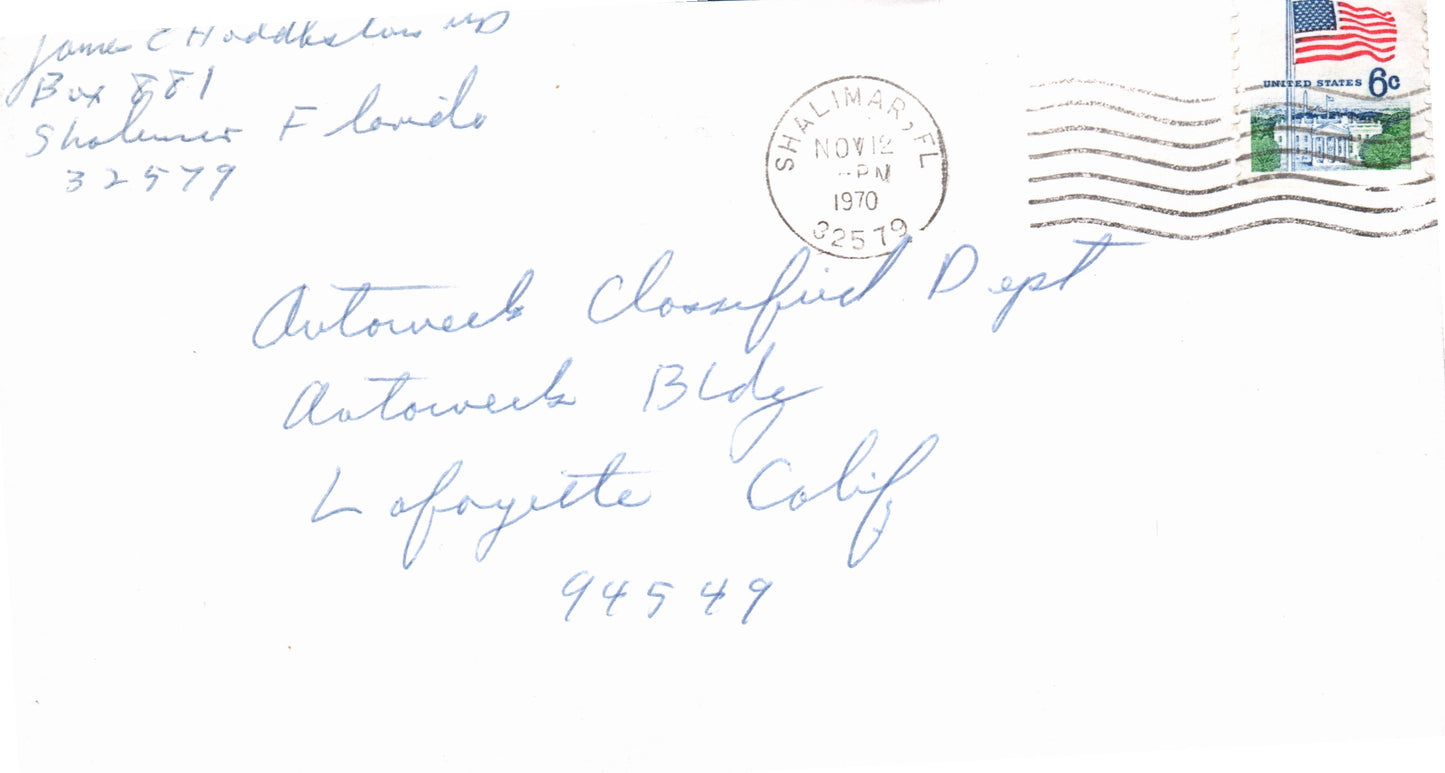 James C Huddleston MD
Box 881
Shalimar Florida
32579
SHALIMAR, FL
NOV 12
PM
1970
32579
UNITED STATES 6c
Autoweek Classified Dept
Autoweek Bldg
Lafayette Calif
94549